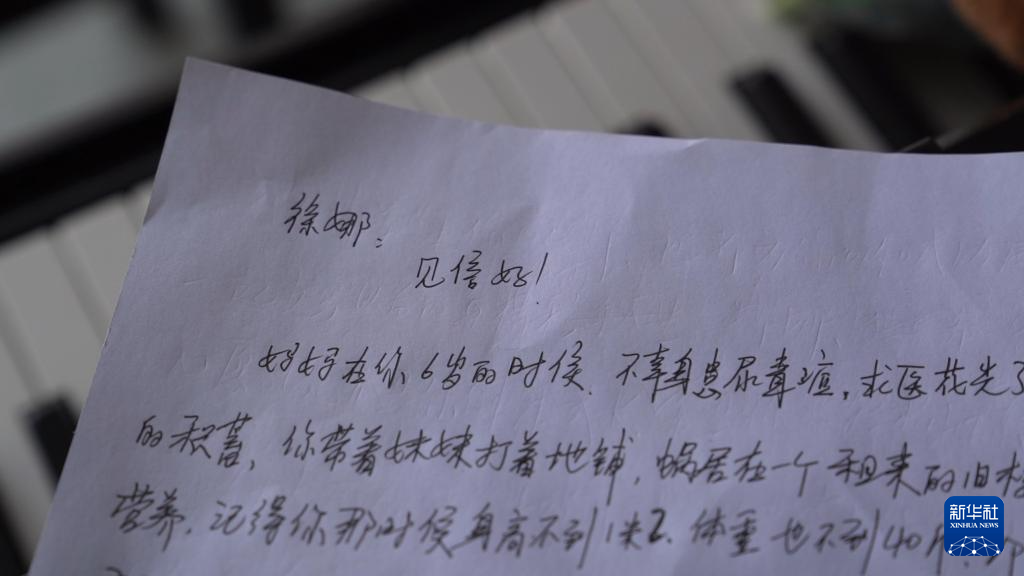 徐娜：
见信好！
妈妈在你6岁的时候，不幸身患尿毒症，求医花光了
的积蓄，你带着妹妹打着地铺，蜗居在一个租来的旧
营养，记得你那时候身高不到1米2，体重也不到40斤，
新华社
XINHUA NEWS